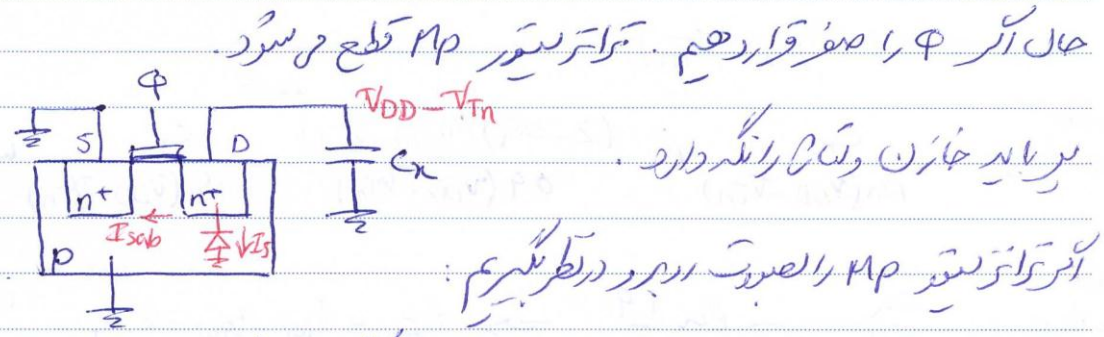 حال اگر φ را صفر قرار دهیم. ترانزیستور Mp قطع می شود.
φ
VDD - VTn
S D
Cx
پس باید خازن ولتاژ را نگه دارد.
n+ n+
Isub Is
P
اگر ترانزیستور Mp را بصورت روبرو در نظر بگیریم: